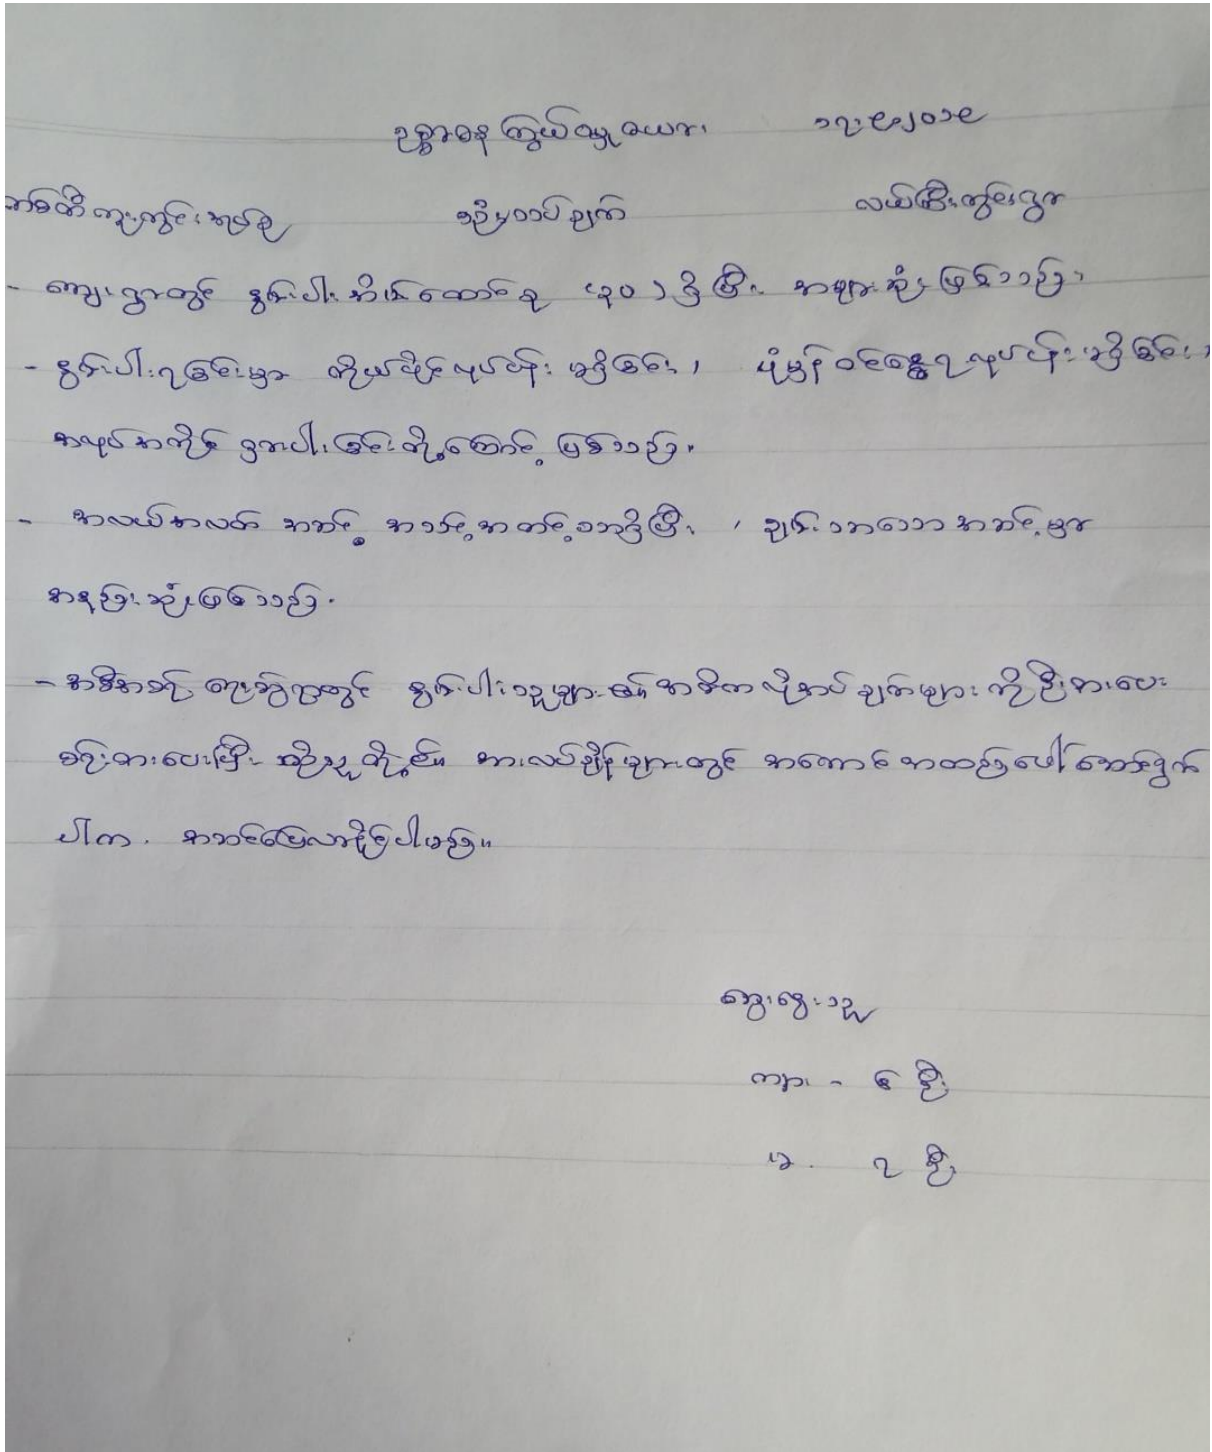 ဥစ္စာဓန ကြွယ်ဝမှု ဇယား ၁၇.၉.၂၀၁၉
သုံးသပ်ချက် လယ်ကြီးကွင်းရွာ
- ကျေးရွာတွင် နွမ်းပါး အိမ်ထောင်စု (၃၀) ရှိပြီး အများဆုံး ဖြစ်သည်။
- နွမ်းပါးရခြင်းမှာ ကိုယ်ပိုင်လုပ်ငန်း မရှိခြင်း၊ ပုံမှန် ဝင်ငွေရ လုပ်ငန်း မရှိခြင်း၊
အလုပ်အကိုင် ရှားပါးခြင်းတို့ကြောင့် ဖြစ်သည်။
- အလယ်အလတ် အဆင့် အသင့်အတင့်သာရှိပြီး ၊ ချမ်းသာသော အဆင့်မှာ
အနည်းဆုံးဖြစ်သည်။
- အစီအစဉ် ရေးဆွဲရာတွင် နွမ်းပါးသူများ၏ အဓိက လိုအပ်ချက်များကို ဦးစားပေး
စဉ်းစားပေးပြီး ၎င်းတို့၏ အားလပ်ချိန်များတွင် အကောင်အထည်ဖော် ဆောင်ရွက်
ပါက အဆင်ပြေလာနိုင်ပါမည်။
ဆွေးနွေးသူ
ကျား - ၆ ဦး
မ - ၇ ဦး